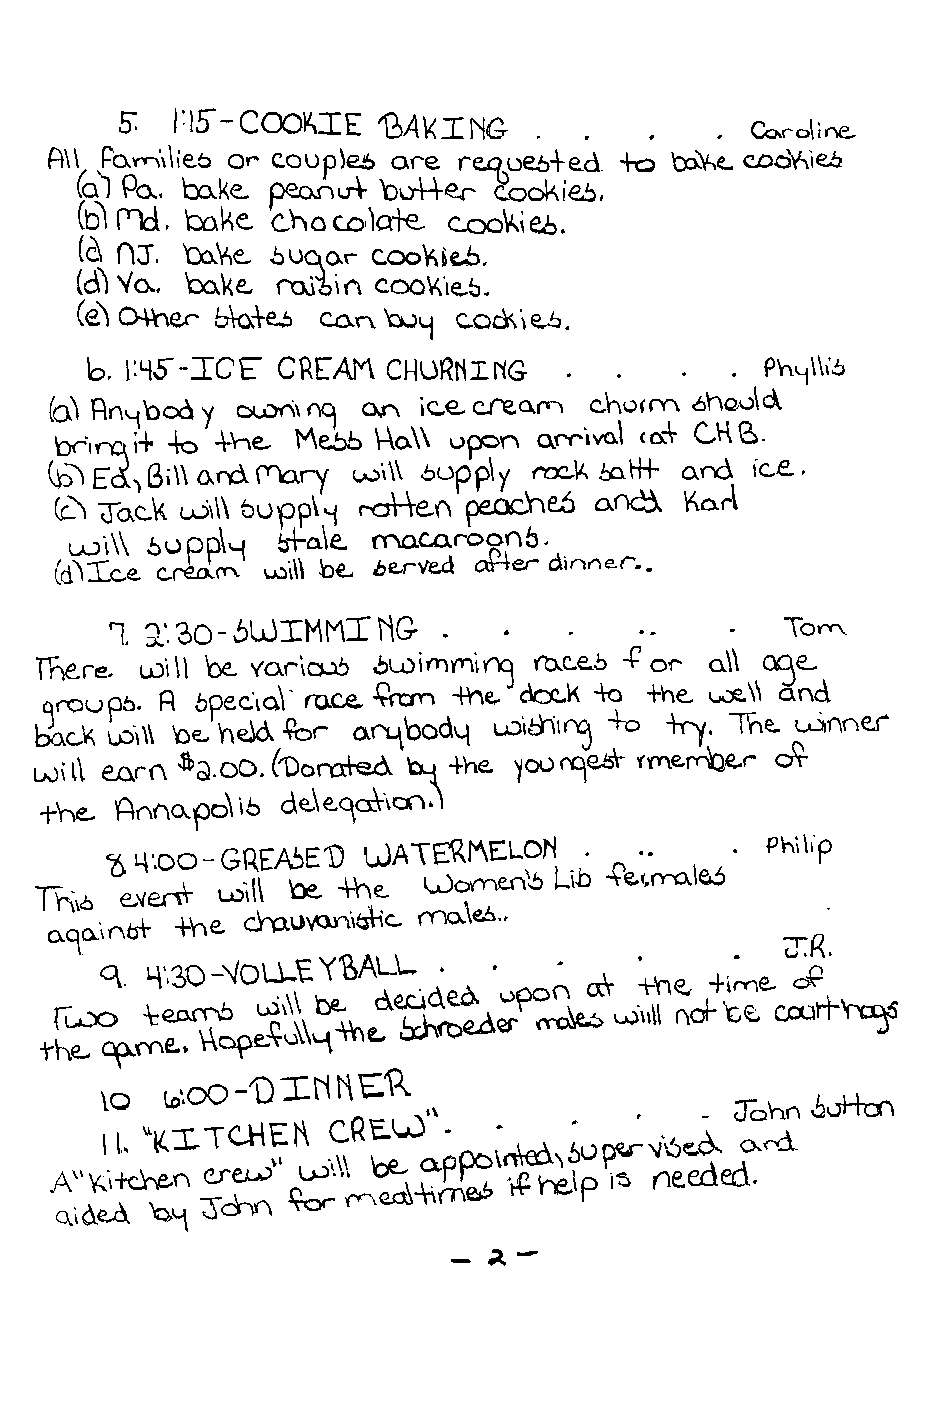 5. 1:15-COOKIE BAKING . . . . Caroline
All families or couples are requested to bake cookies
(a) Pa. bake peanut butter cookies.
(b) Md. bake chocolate cookies.
(c) NJ. bake sugar cookies.
(d) Va. bake raisin cookies.
(e) Other states can buy cookies.
6. 1:45-ICE CREAM CHURNING . . . . Phyllis
(a) Anybody owning an ice cream churm should
bring it to the Mess Hall upon arrival at CHB.
(b) Ed, Bill and Mary will supply rock saltt and ice.
(c) Jack will supply rotten peaches and Karl
will supply stale macaroons.
(d) Ice cream will be served after dinner..
7. 2:30-SWIMMING . . . .. . Tom
There will be various swimming races for all age
groups. A special race from the dock to the well and
back will be held for anybody wishing to try. The winner
will earn $2.00. (Donated by the youngest rmember of
the Annapolis delegation.)
8 4:00-GREASED WATERMELON . .. . Philip
This event will be the Women's Lib feimales
against the chauvanistic males..
9. 4:30-VOLLEYBALL . . . . . J.R.
Two teams will be decided upon at the time of
the game. Hopefully the Schroeder males wiill not be courthogs
10 6:00-DINNER
11. "KITCHEN CREW". . . . . John Sutton
A "kitchen crew" will be appointed, supervised and
aided by John for mealtimes if help is needed.
- 2 -